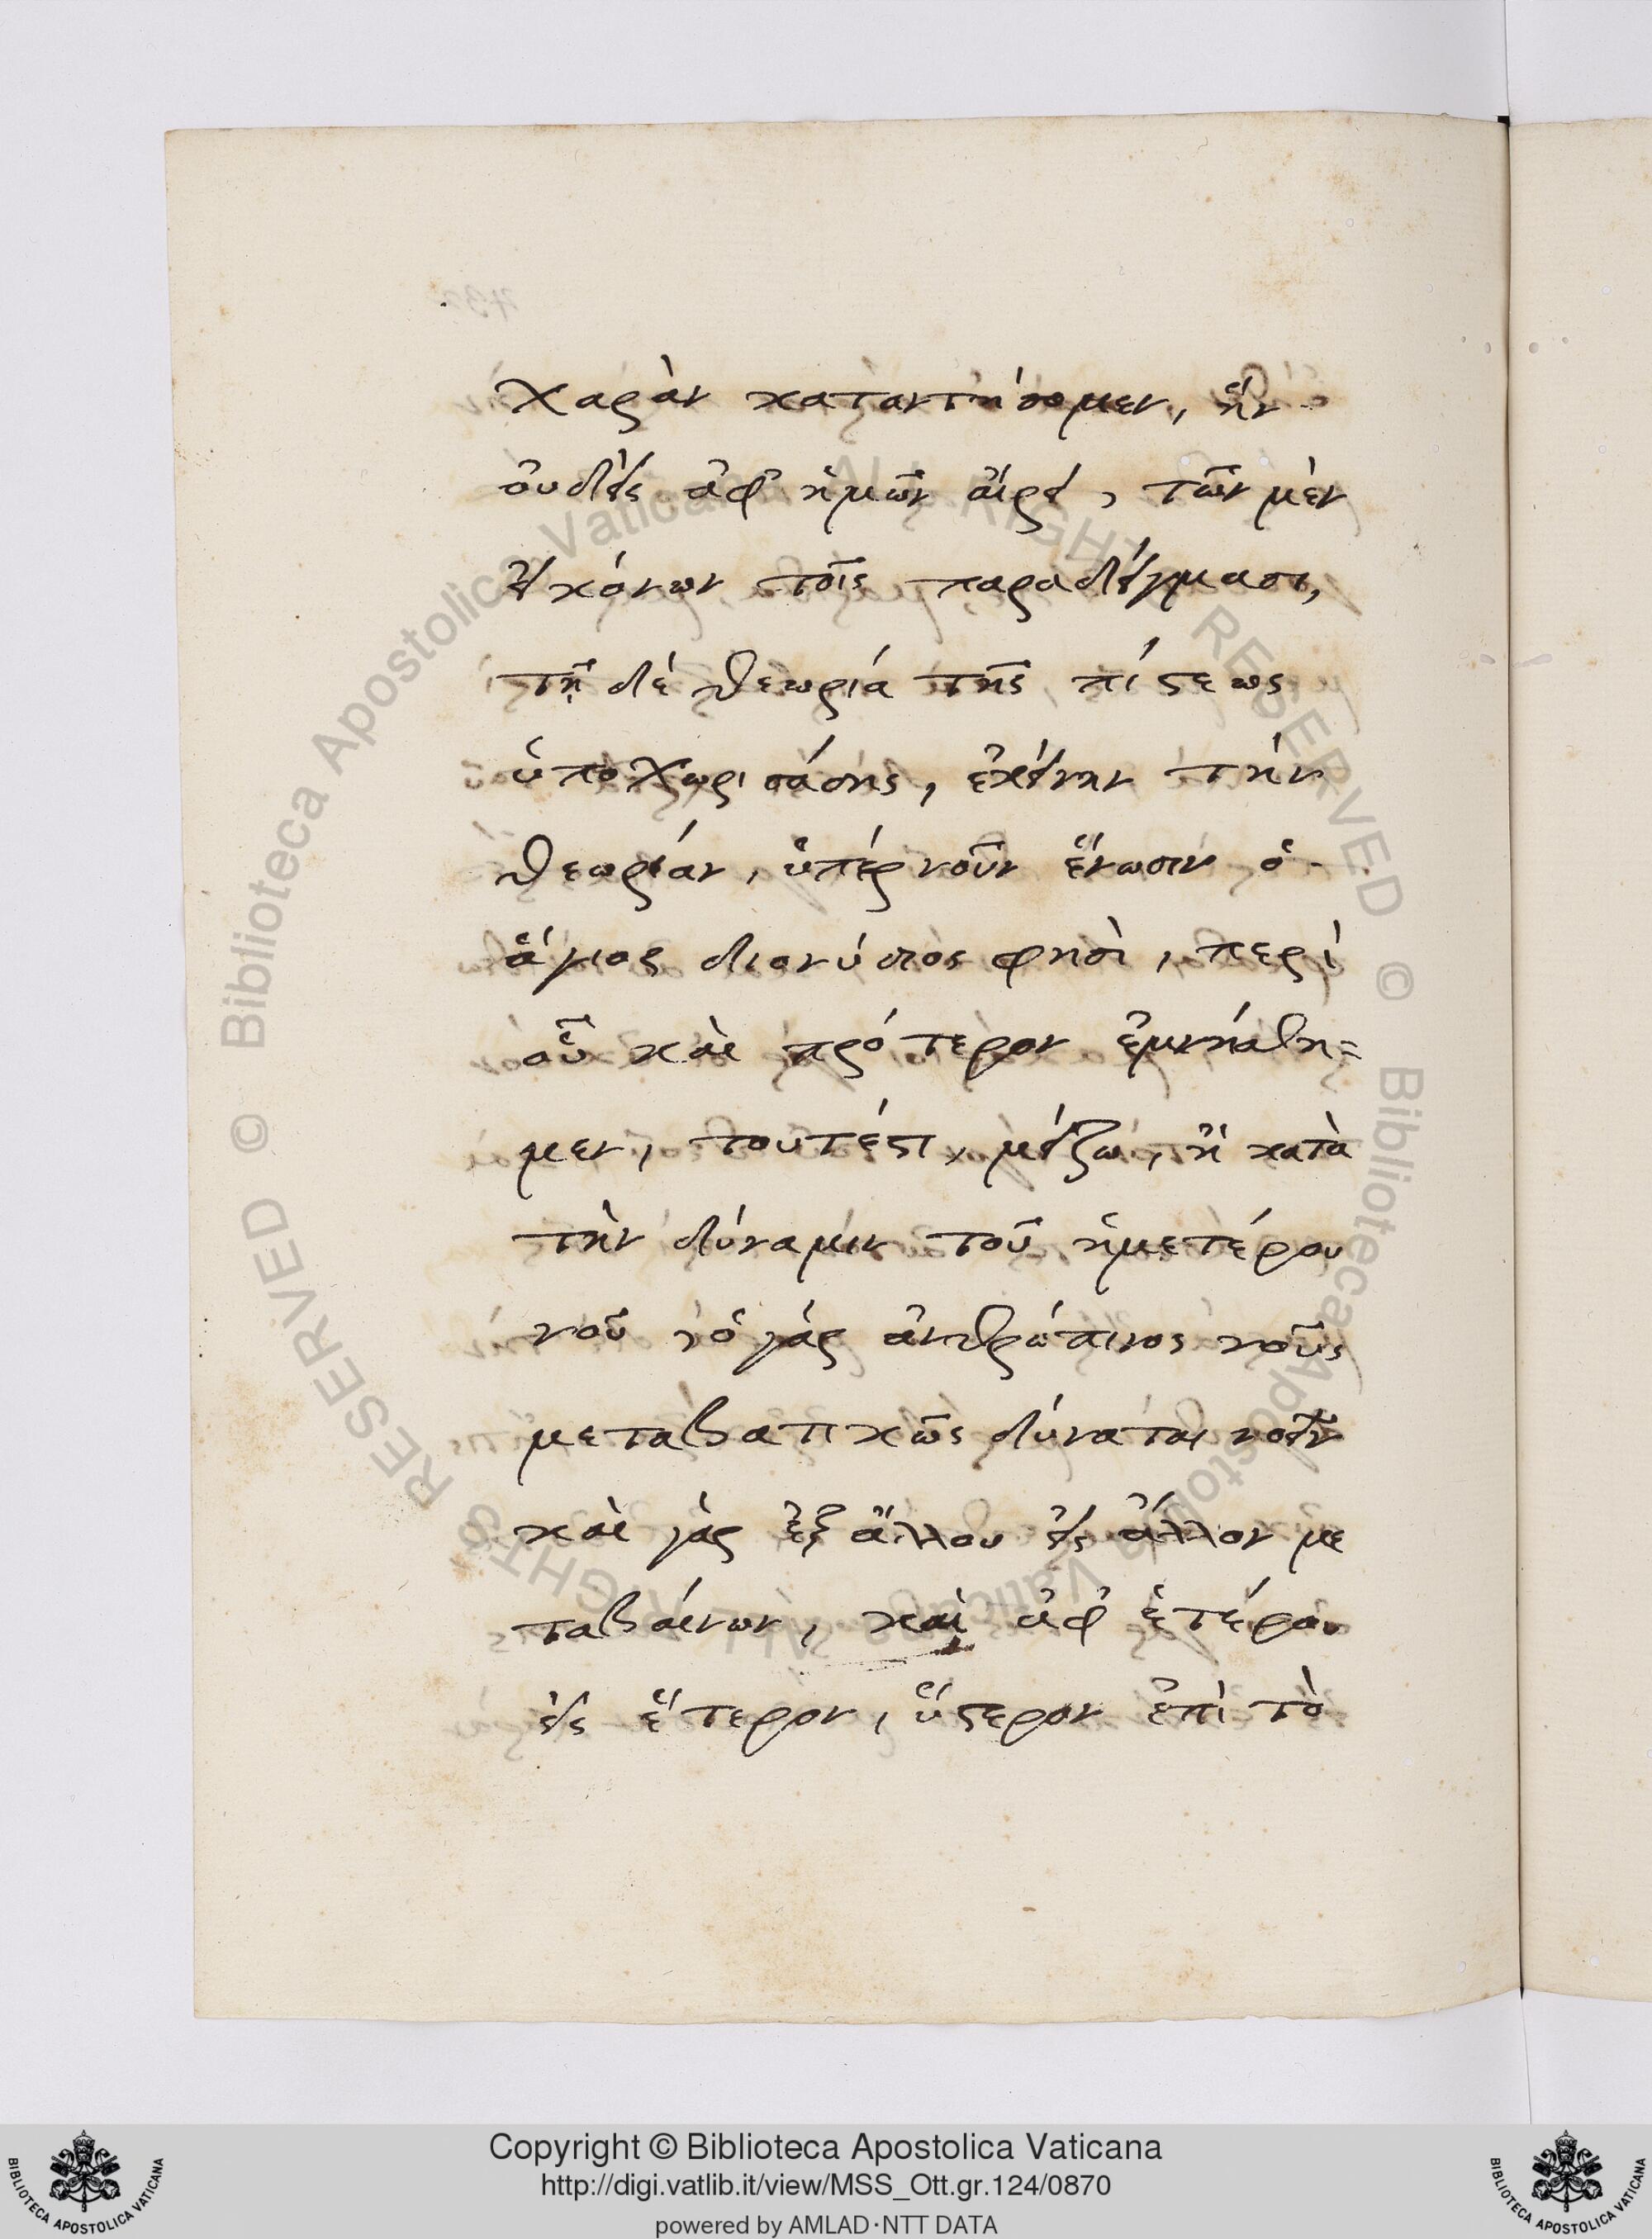 χαρὰν καταντήσομεν, ἣν
οὐδεὶς ἀφ' ἡμῶν αἴρει, τῶν μὲν
εἰκόνων τοῖς παραδείγμασι,
τῇ δὲ θεωρία τῆς πίστεως
ὑποχωρισάσης, ἐκείνην τὴν
θεωρίαν, ὑπὲρ νοῦν ἕνωσιν ὁ
ἅγιος διονύσιος φησὶ, περὶ
οὗ καὶ πρότερον ἐμνήσθη=
μεν, τουτέστι, μείζω, ἢ κατὰ
τὴν δύναμιν τοῦ ἡμετέρου
νοῦ, ὁ γὰρ ἀνθρώπινος νοῦς
μεταβατικῶς δύναται νοεῖν
καὶ γὰρ ἐξ ἄλλου εἰς ἄλλον με
ταβαίνων, καὶ ἀφ' ἑτέρου
εἰς ἕτερον, ὕστερον ἐπὶ τὸ
© Biblioteca Apostolica Vaticana ALL RIGHTS RESERVED © Biblioteca Apostolica Vaticana ALL RIGHTS RESERVED
Copyright © Biblioteca Apostolica Vaticana
http://digi.vatlib.it/view/MSS_Ott.gr.124/0870
powered by AMLAD·NTT DATA
BIBLIOTECA APOSTOLICA VATICANA
BIBLIOTECA APOSTOLICA VATICANA